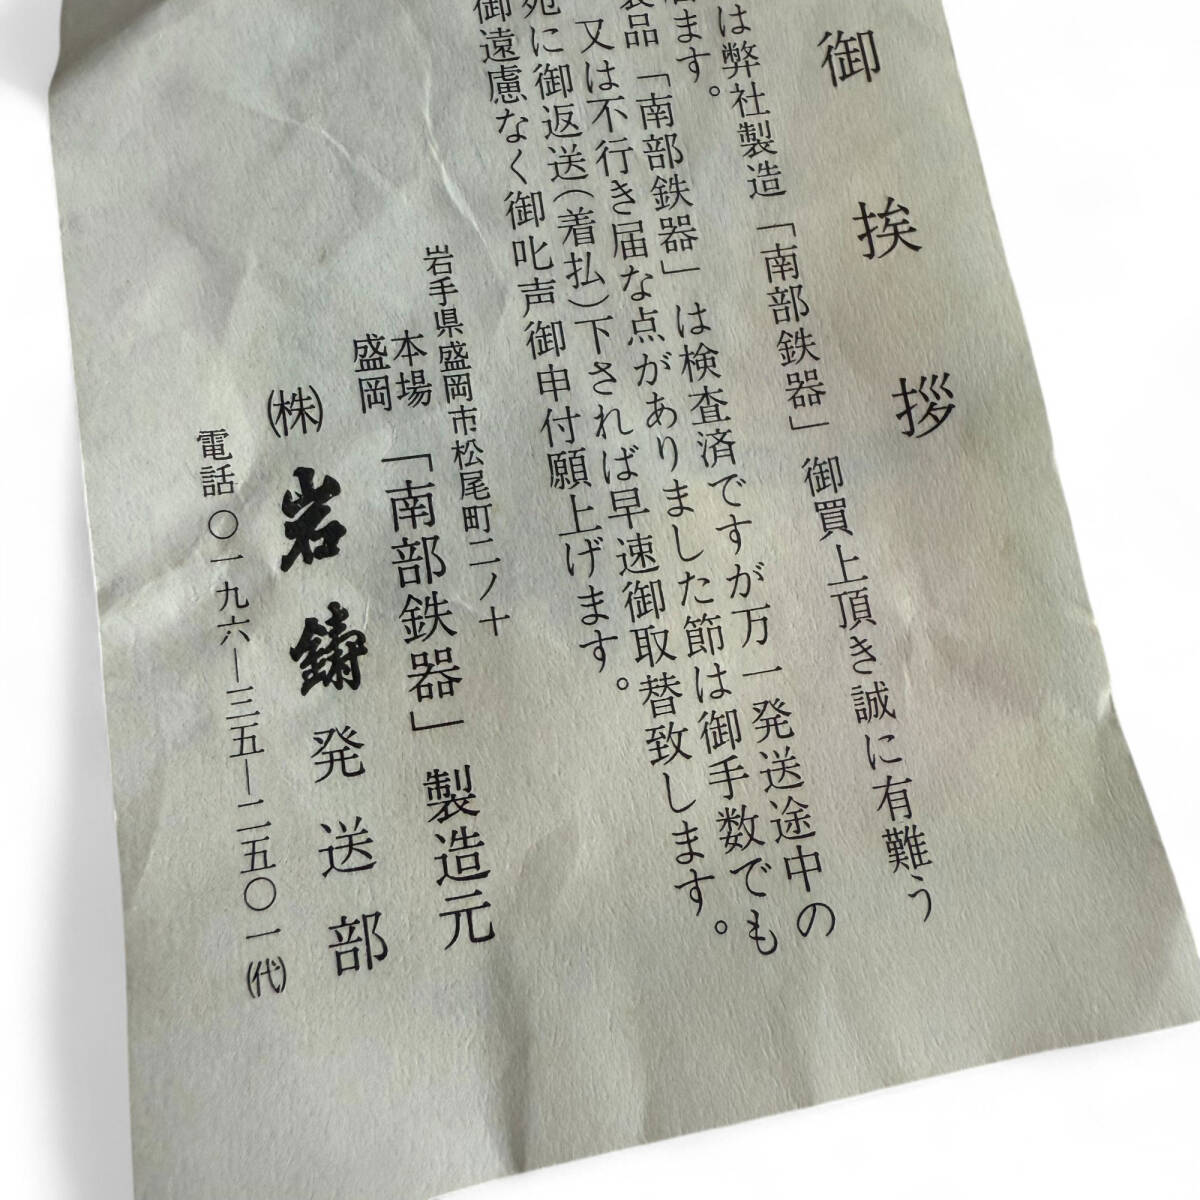 御挨拶
は弊社製造「南部鉄器」御買上頂き誠に有難う
ます。
製品「南部鉄器」は検査済ですが万一発送途中の
又は不行き届な点がありました節は御手数でも
宛に御返送(着払)下されば早速御取替致します。
御遠慮なく御叱声御申付願上げます。
岩手県盛岡市松尾町二ノ十
本場盛岡「南部鉄器」製造元
㈱岩鋳発送部
電話〇一九六―三五―二五〇一㈹